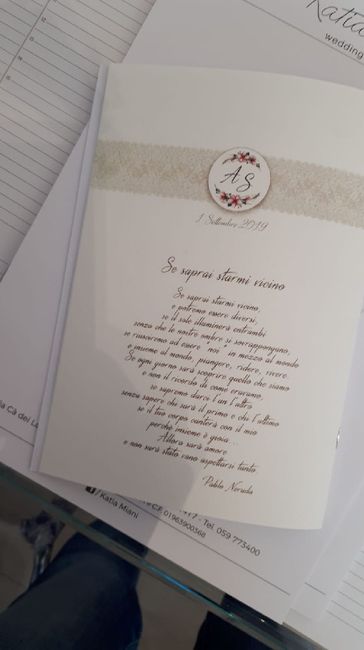 Katia
wedding
AS
1 Settembre 2019
Se saprai starmi vicino
Se saprai starmi vicino,
e potremo essere diversi,
se il sole illuminerà entrambi
senza che le nostre ombre si sovrappongano,
se riusciremo ad essere "noi" in mezzo al mondo
e insieme al mondo, piangere, ridere, vivere.
Se ogni giorno sarà scoprire quello che siamo
e non il ricordo di come eravamo,
se sapremo darci l'un l'altro
senza sapere chi sarà il primo e chi l'ultimo
se il tuo corpo canterà con il mio
perché insieme è gioia...
Allora sarà amore
e non sarà stato vano aspettarsi tanto.
Pablo Neruda
Cà dei
Tel. 059 773400
01963900368
/ Katia Miani